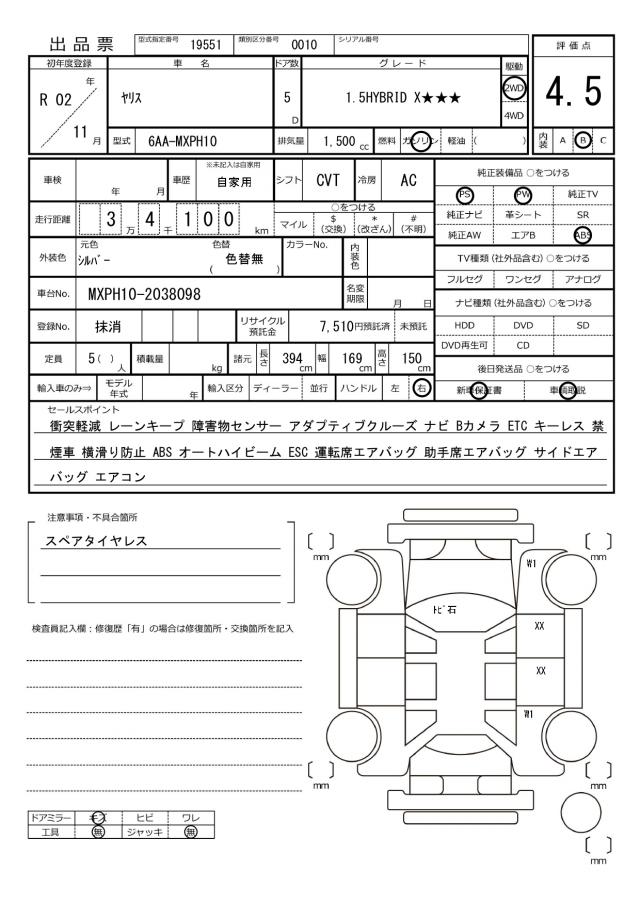 出品票 型式指定番号 19551 類別区分番号 0010 シリアル番号
評価点
4.5
内装 A B C
初年度登録 車名 ドア数 グレード 駆動
R 02 年 11 月 ヤリス 5 D 1.5HYBRID X★★★ 2WD 4WD
型式 6AA-MXPH10 排気量 1,500 cc 燃料 ガソリン 軽油 ( )
車検 年 月 車歴 ※未記入は自家用 自家用 シフト CVT 冷房 AC
走行距離 3 万 4 千 1 0 0 km ○をつける
マイル $ (交換) * (改ざん) # (不明)
外装色 元色 シルバー 色替 ( 色替無 ) カラーNo. 内装色
車台No. MXPH10-2038098 名変期限 月 日
登録No. 抹消 リサイクル預託金 7,510円預託済 未預託
定員 5 ( ) 人 積載量 kg 諸元 長さ 394 cm 幅 169 cm 高さ 150 cm
輸入車のみ⇒ モデル年式 年 輸入区分 ディーラー 並行 ハンドル 左 右
純正装備品 ○をつける
PS PW 純正TV
純正ナビ 革シート SR
純正AW エアB ABS
TV種類(社外品含む) ○をつける
フルセグ ワンセグ アナログ
ナビ種類(社外品含む) ○をつける
HDD DVD SD
DVD再生可 CD
後日発送品 ○をつける
新車保証書 車輌取説
セールスポイント
衝突軽減 レーンキープ 障害物センサー アダプティブクルーズ ナビ Bカメラ ETC キーレス 禁
煙車 横滑り防止 ABS オートハイビーム ESC 運転席エアバッグ 助手席エアバッグ サイドエア
バッグ エアコン
注意事項・不具合箇所
スペアタイヤレス
検査員記入欄：修復歴「有」の場合は修復箇所・交換箇所を記入
ドアミラー キズ ヒビ ワレ
工具 無 ジャッキ 無
mm mm
W1
トビ石
XX
XX
W1
mm mm
mm